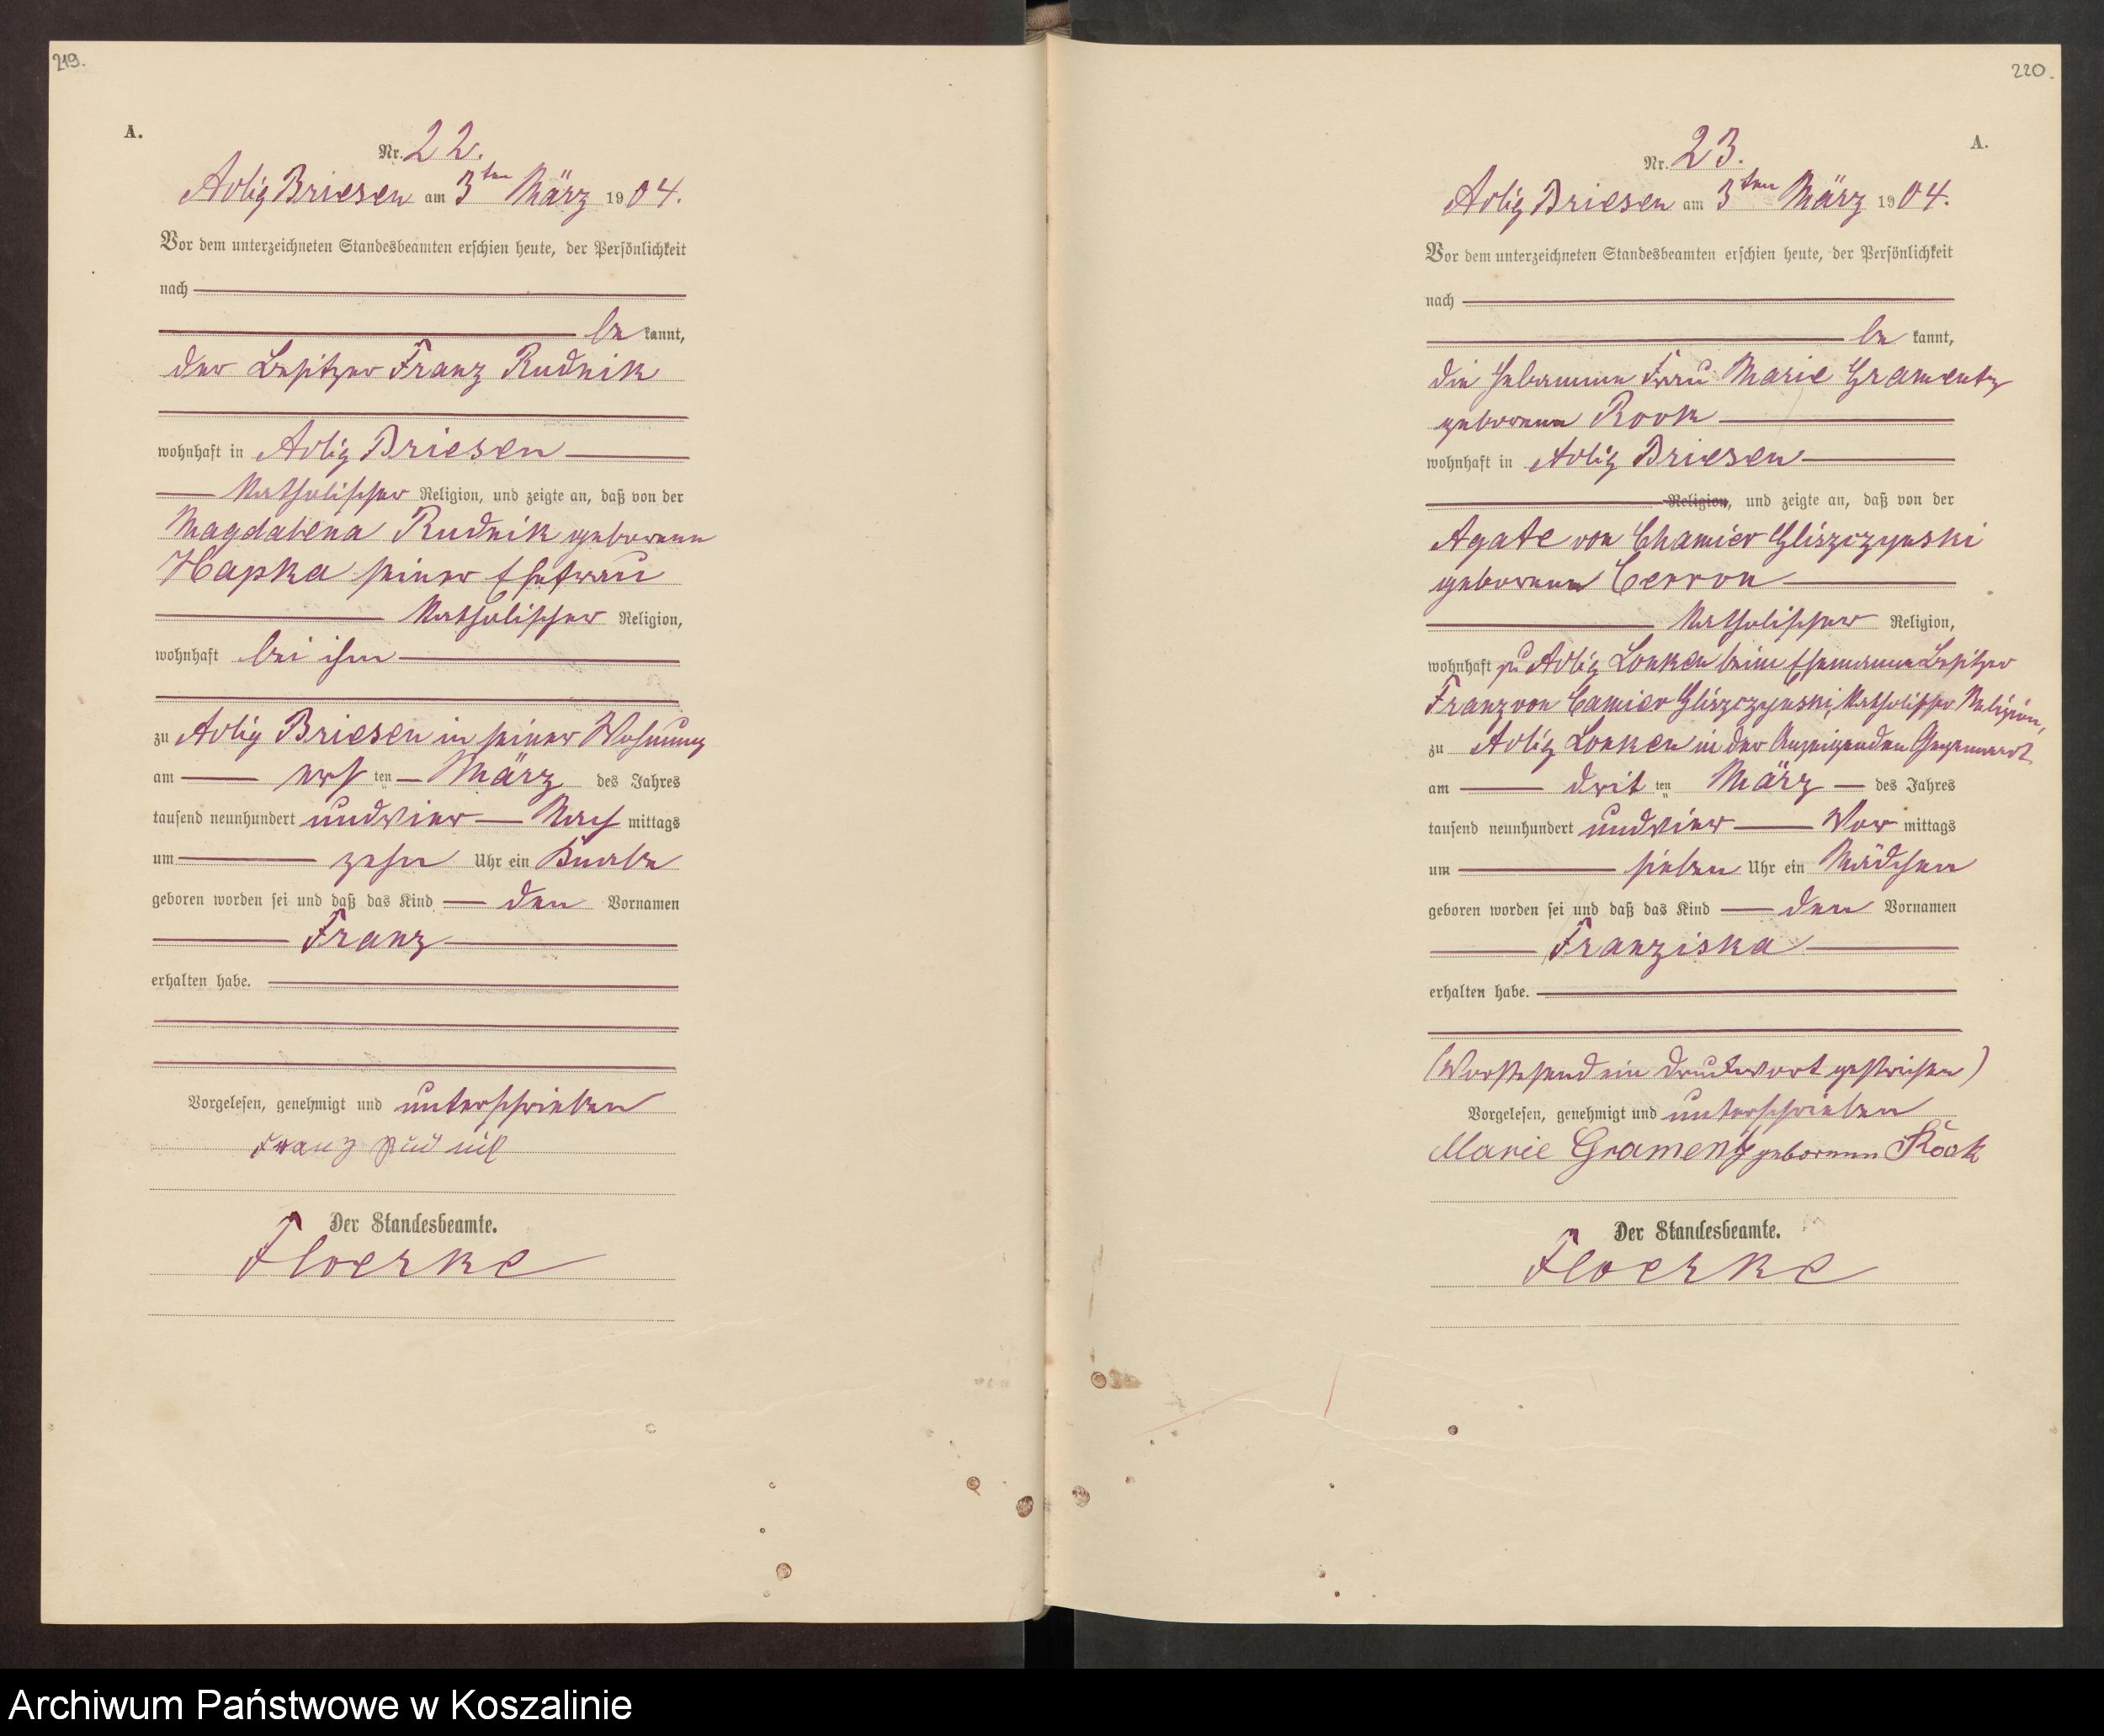 219.
A.
Nr. 22.
Adlig Briesen am 3ten März 1904.
Vor dem unterzeichneten Standesbeamten erschien heute, der Persönlichkeit
nach
be kannt,
der Besitzer Franz Rudnik
wohnhaft in Adlig Briesen
katholischer Religion, und zeigte an, daß von der
Magdalena Rudnik geborenen
Hapka seiner Ehefrau
katholischer Religion,
wohnhaft bei ihm
zu Adlig Briesen in seiner Wohnung
am ersten März des Jahres
tausend neunhundert undvier Nachmittags
um zehn Uhr ein Knabe
geboren worden sei und daß das Kind den Vornamen
Franz
erhalten habe.
Vorgelesen, genehmigt und unterschrieben
Franz Rudnik
Der Standesbeamte.
Floerke
220.
A.
Nr. 23.
Adlig Briesen am 3ten März 1904.
Vor dem unterzeichneten Standesbeamten erschien heute, der Persönlichkeit
nach
be kannt,
die Hebamme Frau Marie Gramentz
geborene Rook
wohnhaft in Adlig Briesen
Religion, und zeigte an, daß von der
Agate von Chamier Gliszczynski
geborenen Cerron
katholischer Religion,
wohnhaft zu Adlig Lonken beim Ehemanne Besitzer
Franz von Camier Gliszczynski, katholischer Religion,
zu Adlig Lonken in der Anzeigenden Gegenwart
am dritten März des Jahres
tausend neunhundert undvier Vormittags
um sieben Uhr ein Mädchen
geboren worden sei und daß das Kind den Vornamen
Franziska
erhalten habe.
(Vorstehend ein Druckwort gestrichen)
Vorgelesen, genehmigt und unterschrieben
Marie Gramentz geborene Rook
Der Standesbeamte.
Floerke
Archiwum Państwowe w Koszalinie